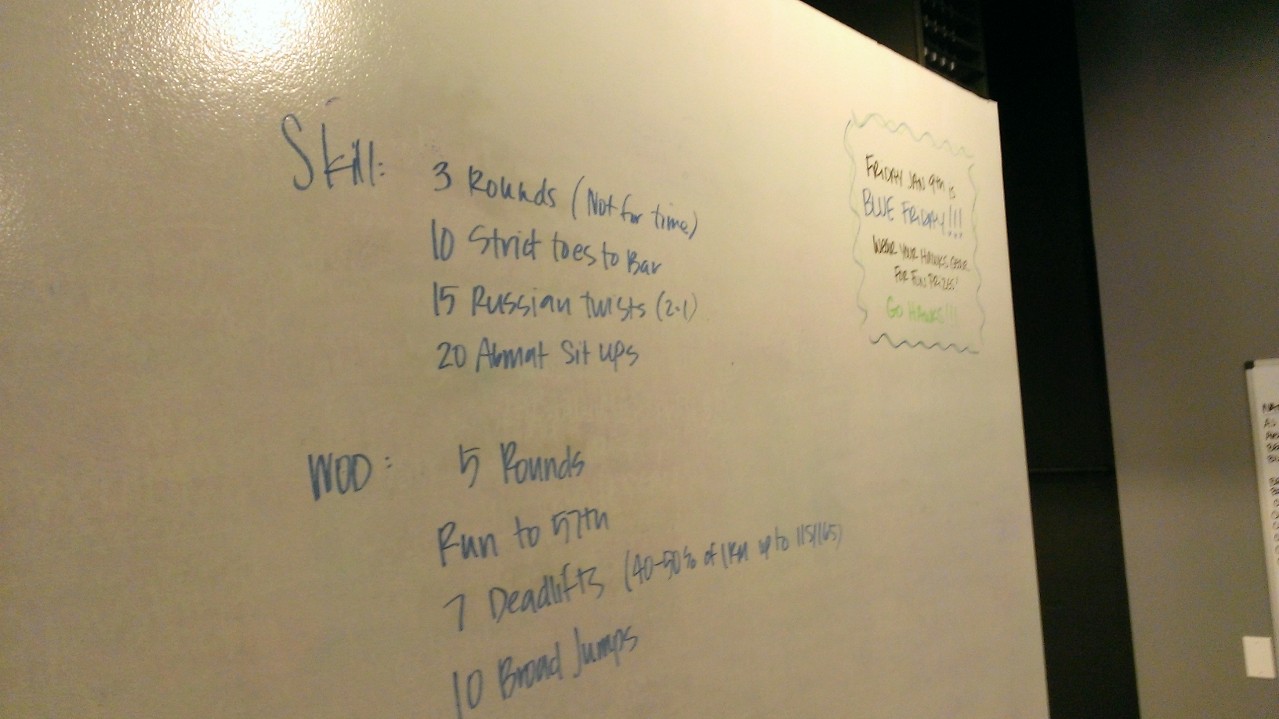 Skill:
3 Rounds (Not for time)
10 Strict toes to Bar
15 Russian twists (2-1)
20 Abmat Sit ups
WOD:
5 Rounds
Run to 57th
7 Deadlifts (40-50% of 1RM up to 115/165)
10 Broad Jumps
FRIDAY JAN 9th is
BLUE FRIDAY!!!
WEAR YOUR HAWKS GEAR
FOR FUN PRIZES!
GO HAWKS!!!